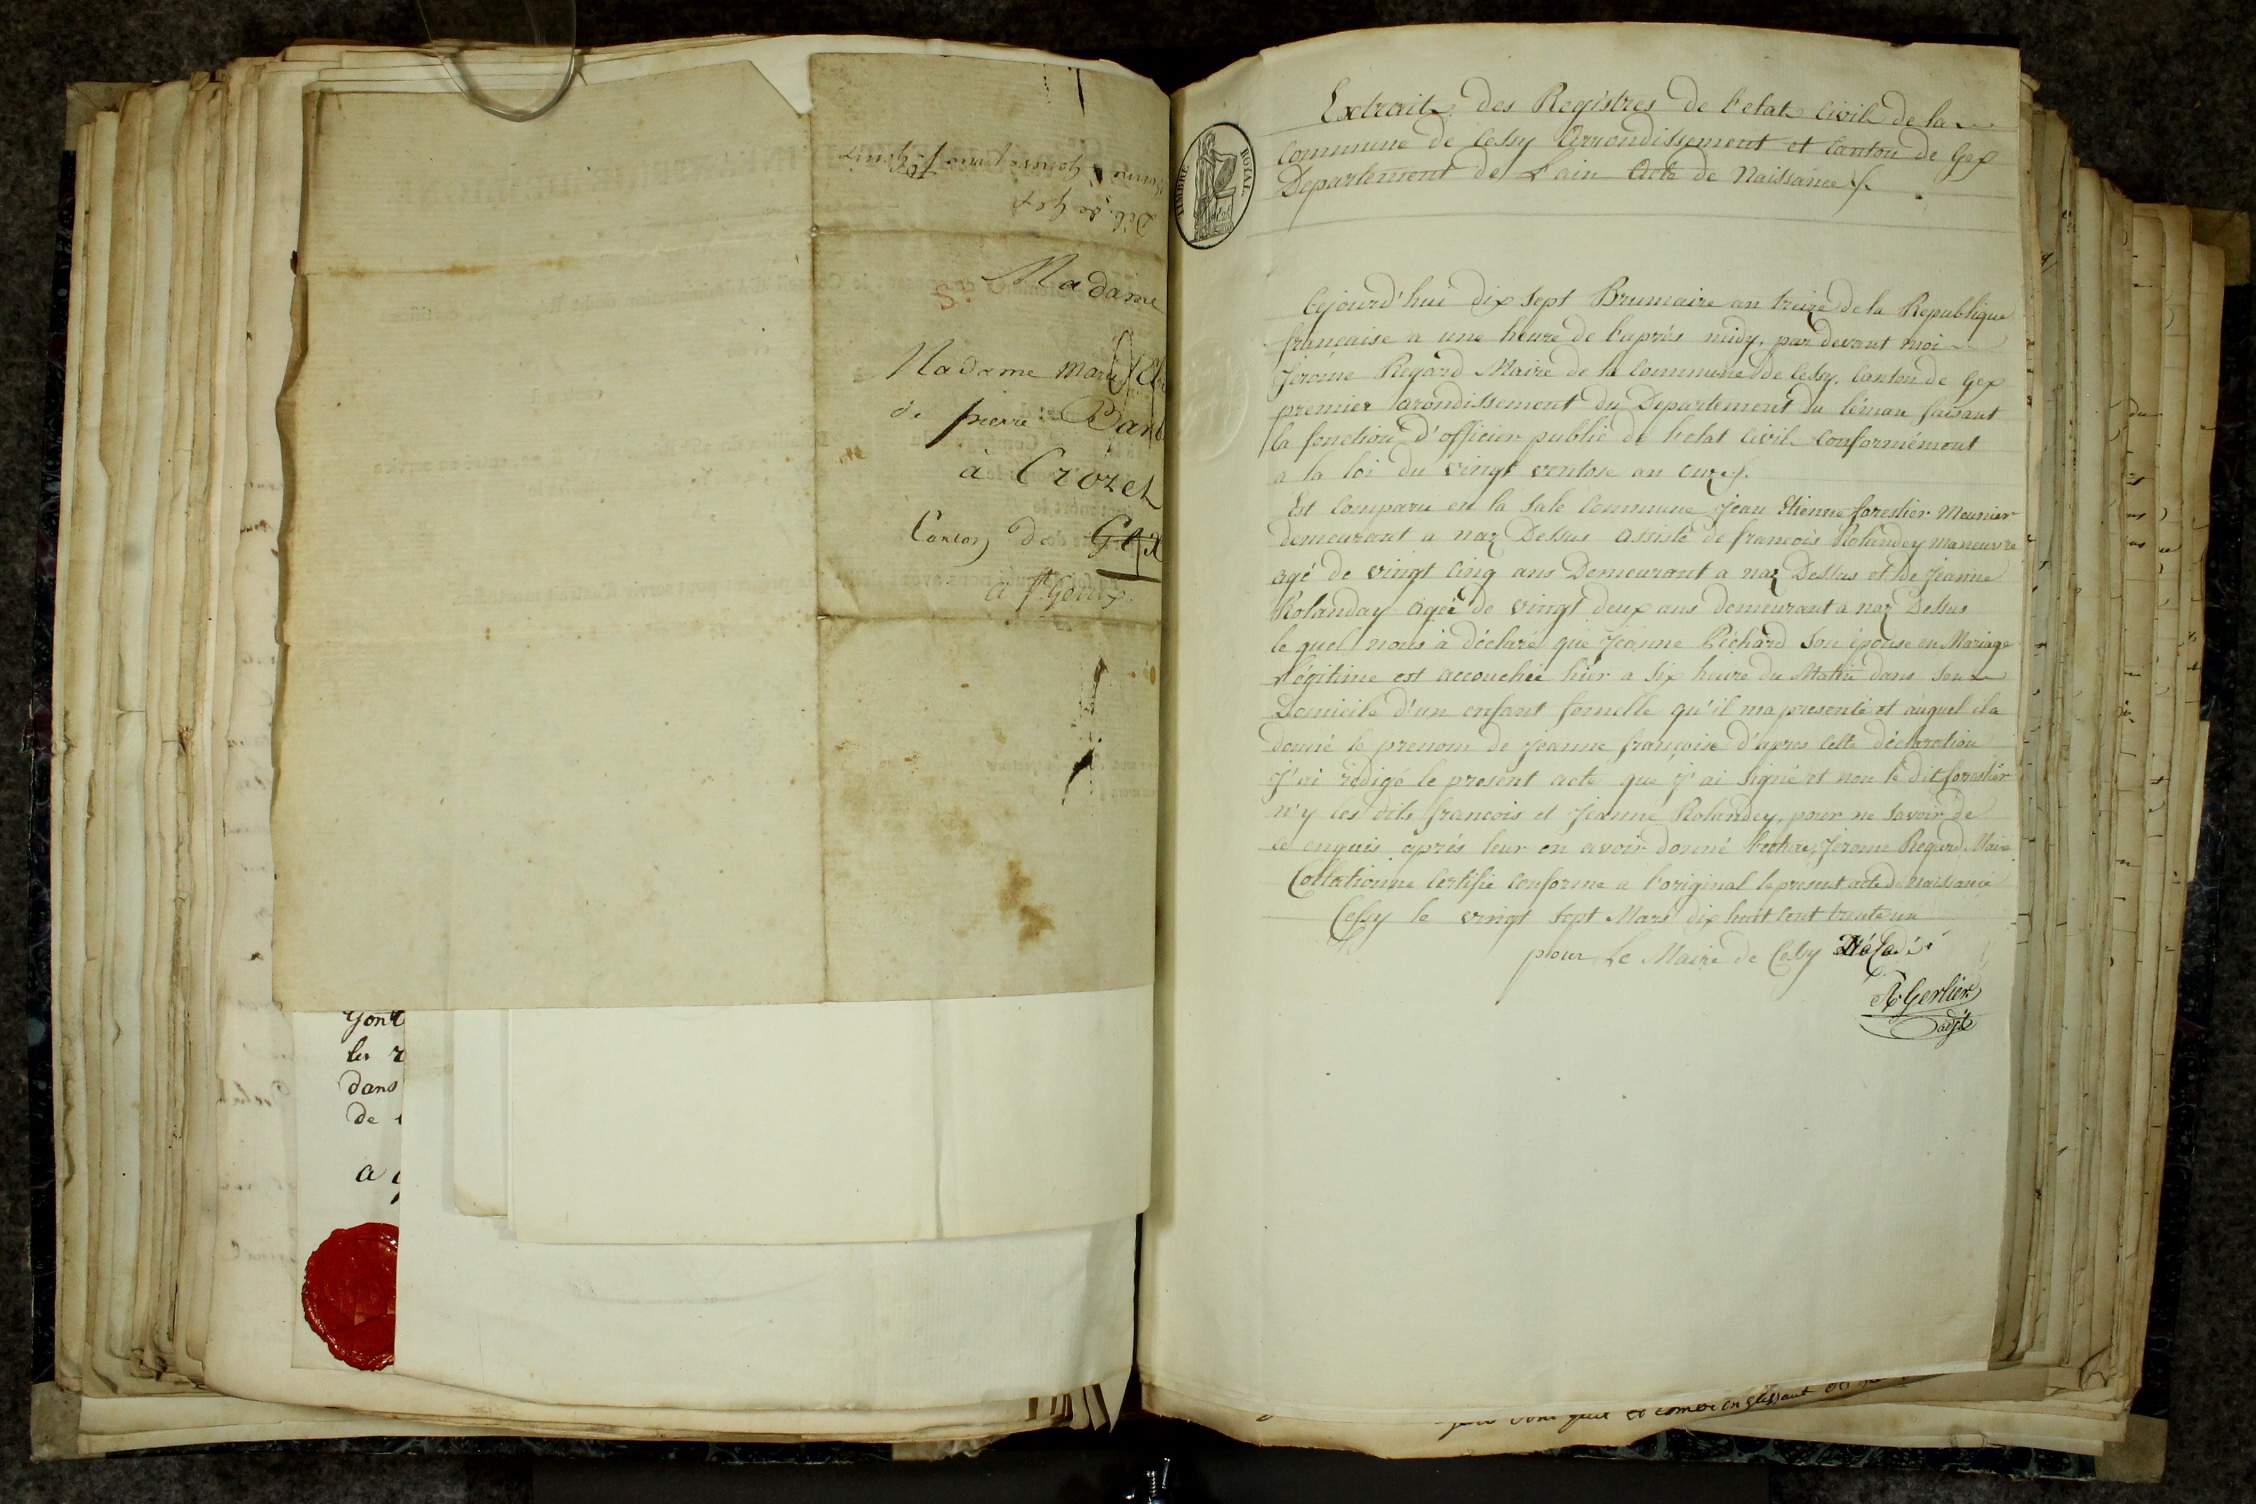 Déb. de Gex
Sn
Madame
Madame Marie
de pierre Bar
à Crozet
Canton de Gex
à St Genix
Gont
les
dans
de
a
TIMBRE ROYAL
Extrait des Registres de l'etat Civil de la
Commune de Cessy Arrondissement et Canton de Gex
Departement de L'ain Acte de Naissance
Cejourd'hui dix sept Brumaire an treize de la Republique
française a une heure de l'après midy, par devant moi
Jerome Regard Maire de la Commune de Cessy, Canton de Gex
premier arondissement du Departement du léman faisant
la fonction d'officier public de l'etat Civil Conformément
a la loi du vingt ventose an onze
Est Comparu en la Sale Commune Jean Etienne forestier Meunier
demeurant a naz Dessus assisté de francois Rolandey maneuvre
agé de vingt Cinq ans Demeurant a naz Dessus et de Jeanne
Rolanday agée de vingt deux ans demeurant a naz Dessus
le quel nous à déclaré que Jeanne Péchard Son épouse en Mariage
légitime est accouchée hier a Six heure du Matin dans Son
Domicile d'un enfant femelle qu'il ma presenté et auquel ila
donné le prenom de Jeanne françoise d'apres Cette déclaration
J'ai rédigé le present acte que j'ai Signé et non le dit forestier
n'y les dits francois et Jeanne Rolandey, pour ne Savoir de
ce enquis aprés leur en avoir donné lecture, Jerome Regard Maire
Collationné Certifié Conforme a l'original le present acte de naissance
Cessy le vingt Sept Mars dix huit Cent trente un
pour Le Maire de Cessy
Gerlier
adjt